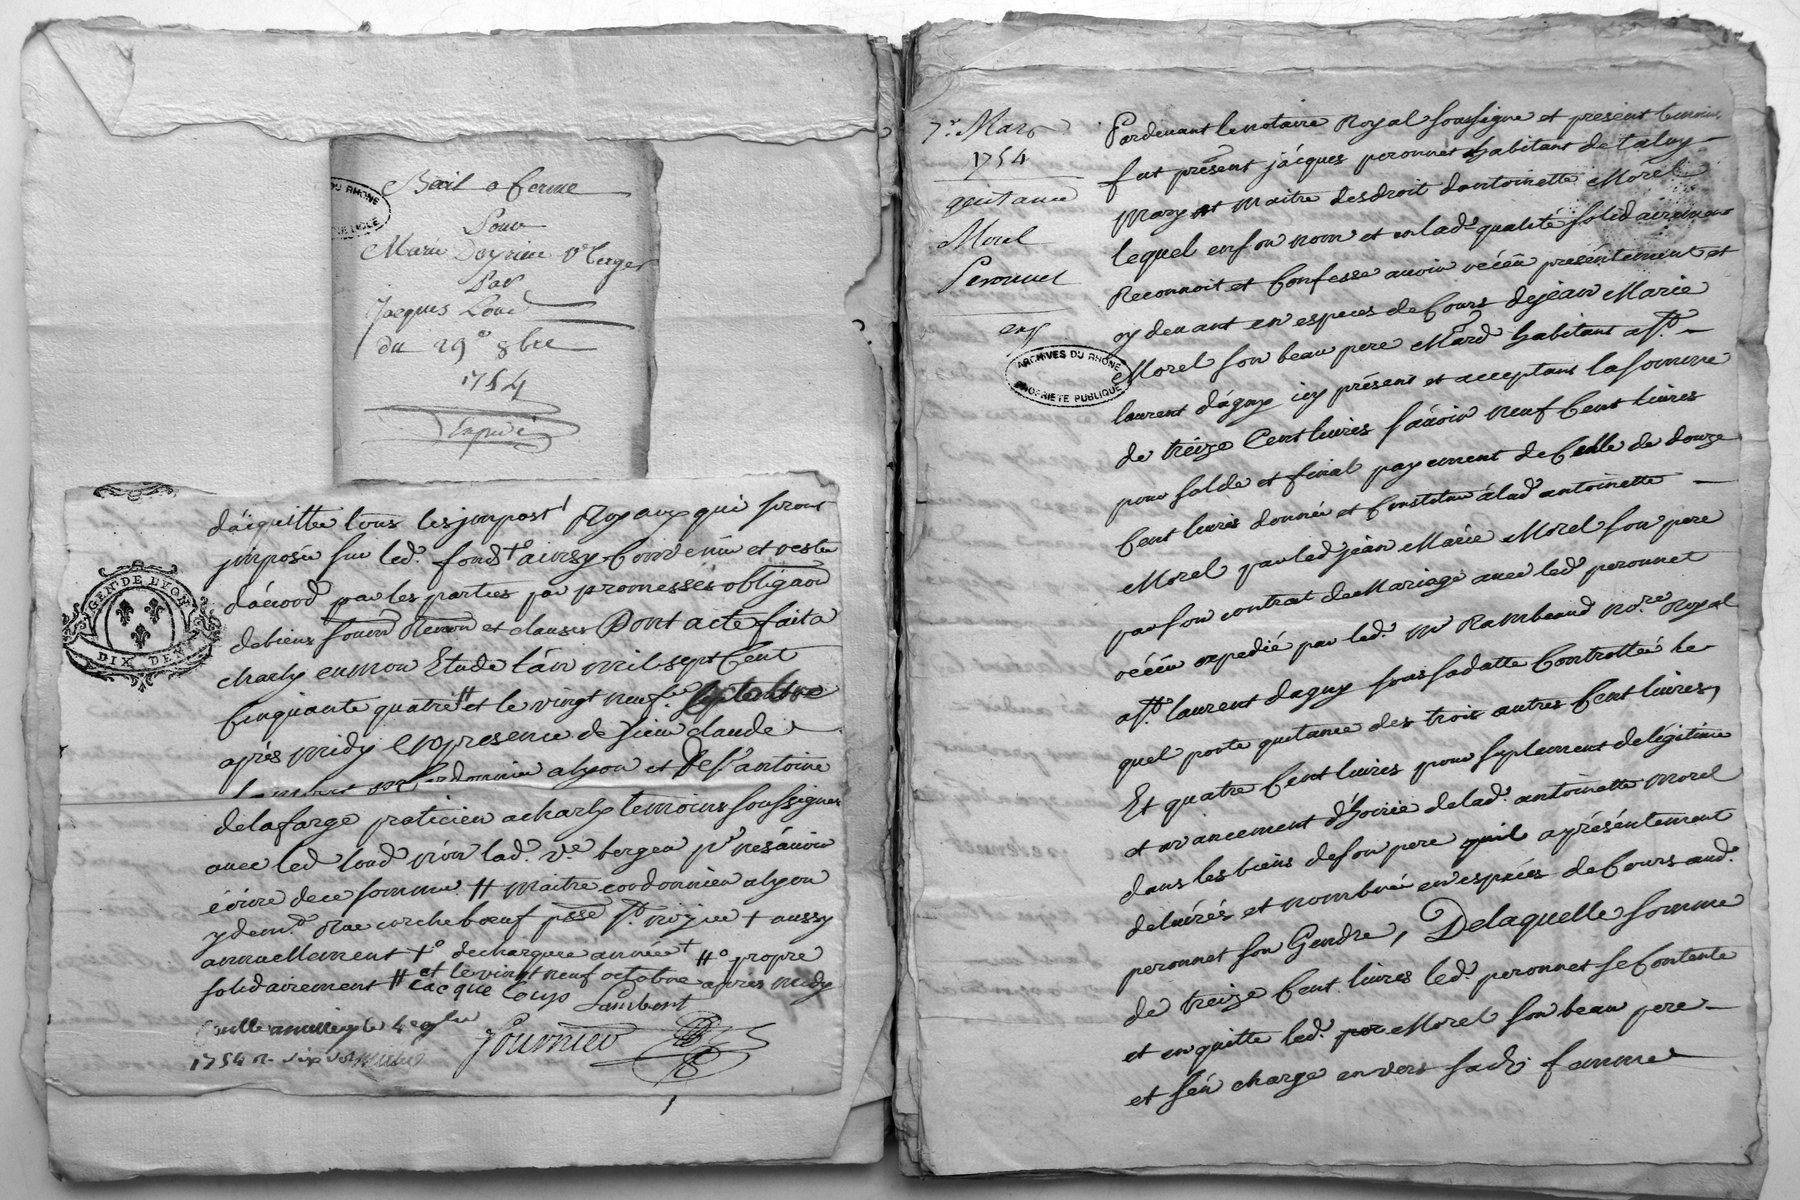 Bail a ferme
Pour
Marie Doyrieu Ve berger
Par
Jacques Loud
du 29e 8bre
1754
DU RHONE
GEN. DE LYON
DIX DEN
d'aiquitter tous les impost Royaux qui seront
imposée sur led. fond to ainsy Convenu et reste
d'acord par les parties par promesses obligaôn
debiens soum Renon et clauses Dont acte fait a
charly en mon Etude l'an mil sept Cent
Cinquante quatre # et le vingt neuf septembre
aprés midy En presence de sieur claude
Lambert cordonnier alyon et de sr antoine
delafarge praticien a charly temoins soussignes
avec led loud non lad. ve. berger pr nesavoir
écrire dece somme # maitre cordonnier alyon
y demt Rue ecorcheboeuf psse st nizier + aussy
annuellement +o dechaque année + #o propre
solidairement # et levingt neuf octobre apres midy
Jacque Loup Lambert
Fournier
Conllé a millery le 4 9bre
1754 R. six sols
7e Mars
1754
quitance
Morel
Peronnet
exp
ARCHIVES DU RHONE
PROPRIETE PUBLIQUE
Pardevant lenotaire Royal soussigne et present temoins
fut présent jácques peronnet habitant de taluy
mary et maitre desdroit dantoinette Morel
lequel enson nom et enlad. qualité solidairement
Reconnoit et Confesse avoir recéu présentement et
cy devant en especes deCours dejean Marie
Morel son beau pere Mard habitant a st.
laurent d'agny icy présent et acceptant lasomme
de treize Cent livres sávoir neuf Cent livres
pour solde et final payement deCelle de douze
Cent livres donnée et Constituée álad antoinette
Morel par led jéan Marie Morel son pere
par son contrat de Mariage avec led. peronnet
recéu expedié par led. mr Rambaud nore. Royal
a st. laurent dagny sous sadatte Controllé le
quel porte quitance des trois autres Cent livres,
Et quatre Cent livres pour suplement delégitime
et avancement d'hoirie delad. antoinette morel
dans les biens deson pere quil aprésentement
delivrés et nombrée en espéces de Cours aud.
peronnet son Gendre, Delaquelle somme
de treize Cent livres led. peronnet se Contente
et en quitte led. Morel son beau pere
et s'én charge envers sade femme